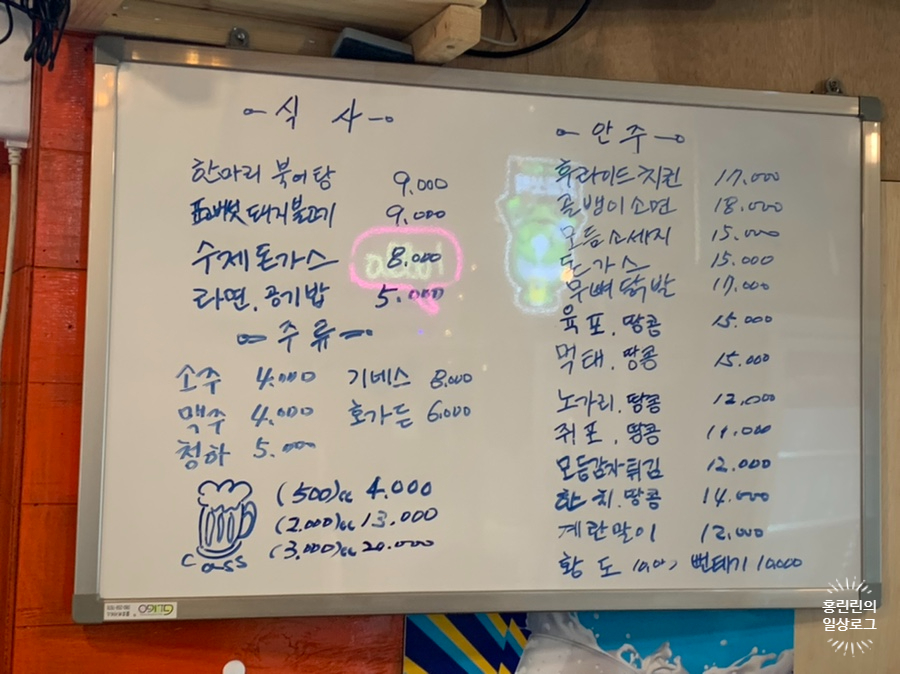 식 사
한마리 북어탕 9.000
표고버섯 돼지불고기 9.000
수제돈가스 8.000
라면.공기밥 5.000
주류
소주 4.000 기네스 8.000
맥주 4.000 호가든 6.000
청하 5.000
(500)cc 4.000
(2.000)cc 13.000
(3.000)cc 20.000
Cass
안주
후라이드치킨 17.000
골뱅이소면 18.000
모듬소세지 15.000
돈가스 15.000
무뼈닭발 17.000
육포.땅콩 15.000
먹태.땅콩 15.000
노가리.땅콩 12.000
쥐포.땅콩 11.000
모듬감자튀김 12.000
한치.땅콩 14.000
계란말이 12.000
황도 뻔데기 10.000
홍린린의
일상로그